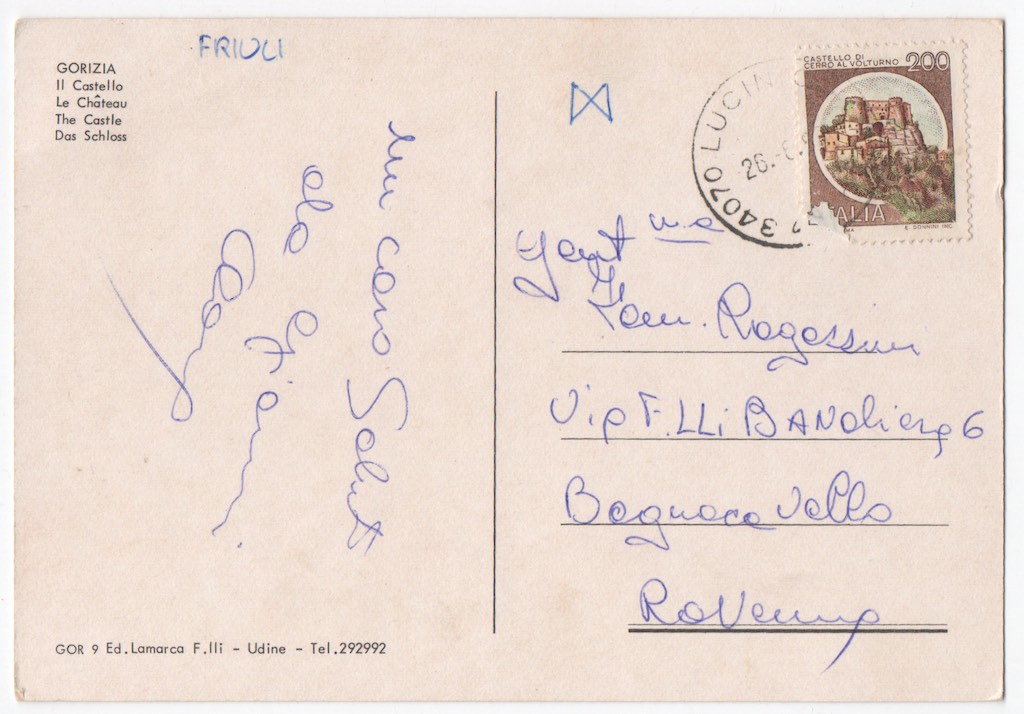 FRIULI
GORIZIA
Il Castello
Le Château
The Castle
Das Schloss
un caro Saluto
da
GOR 9 Ed. Lamarca F.lli - Udine - Tel. 292992
CASTELLO DI
CERRO AL VOLTURNO 200
ITALIA
E. DONNINI INC.
34070 LUCIN
26.-6.
Gent ma
Fam. Ragazzini
Via F.LLi BANdiera 6
Bagnacavallo
RaVenna